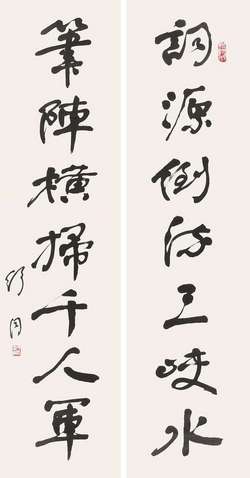 詞源倒流三峡水
筆陣橫掃千人軍
舒同